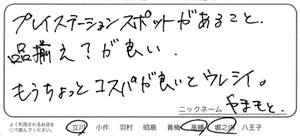 プレイステーションスポットがあること.
品揃え?が良い.
もうちょっとコスパが良いとウレシイ。
ニックネーム やまもと.
よく利用されるお店を○で囲んでください。 立川 小作 羽村 昭島 青梅 高幡 堀之内 八王子